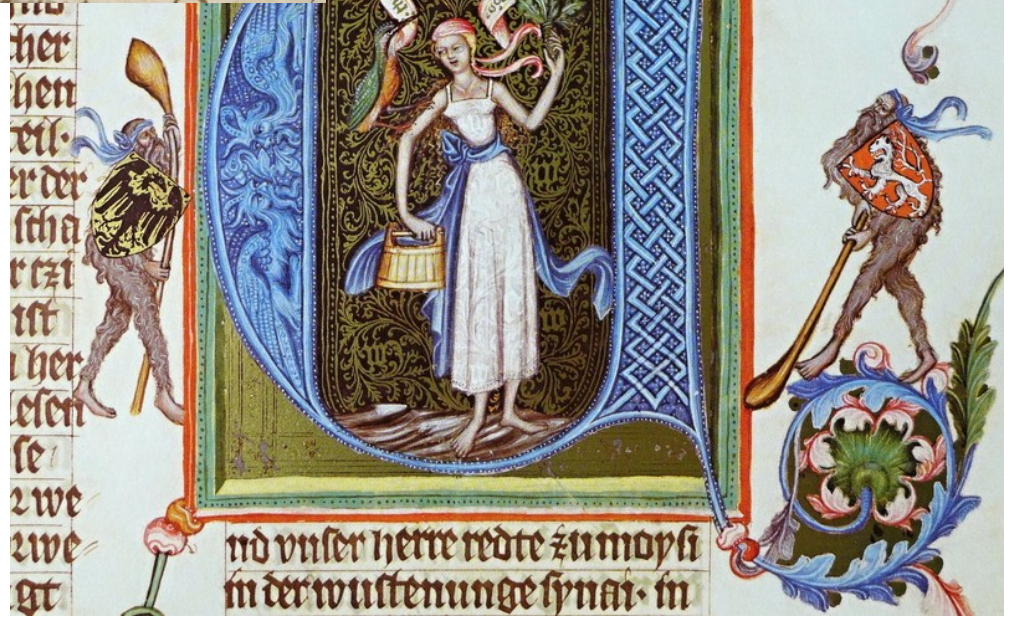 cher
hen
teil·
er der
scha
r czi
ist
her
lesen
se
r we
zwe
gt
nd vnser herre redte zu moysi
in der wustenunge synai· in